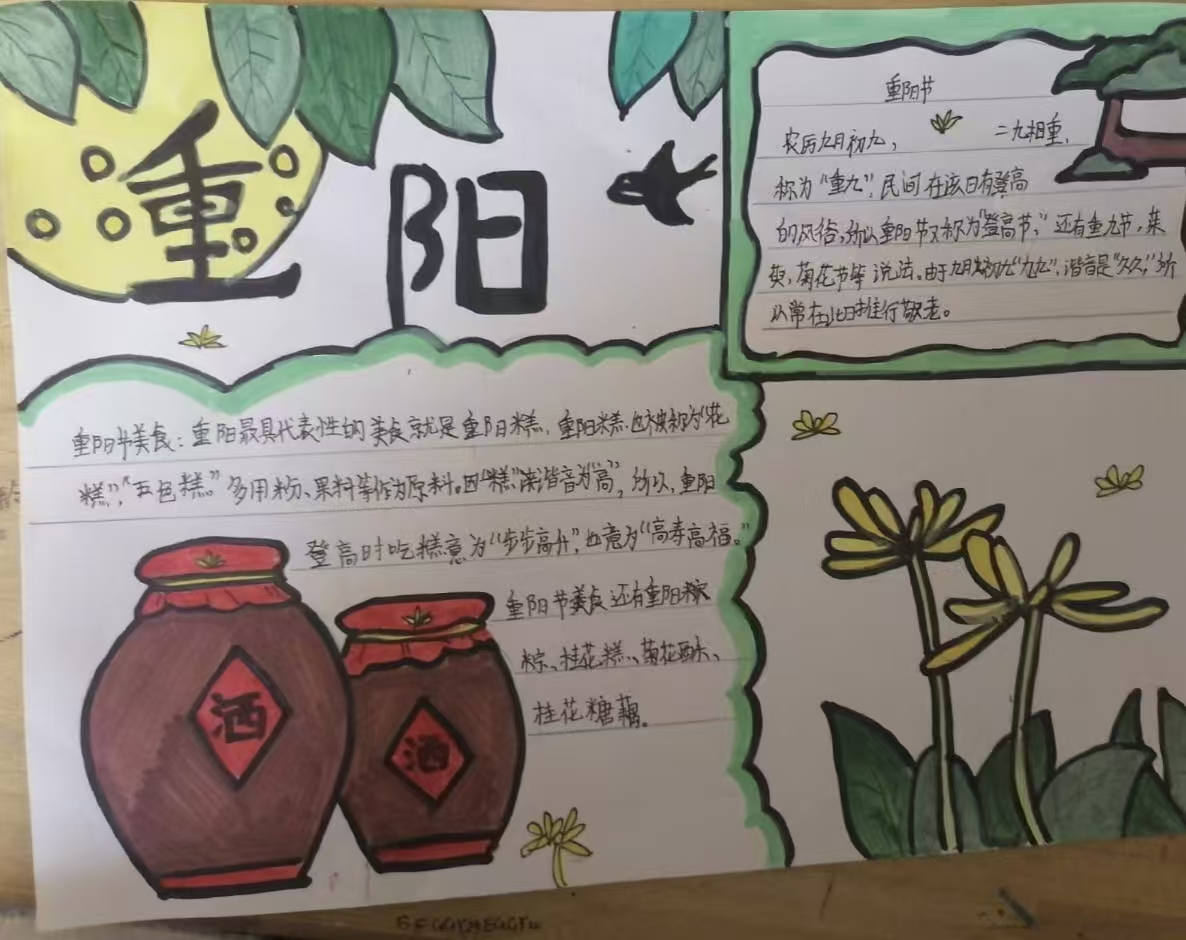 重阳
重阳节
农历九月初九, 二九相重,
称为“重九”,民间在该日有登高
的风俗,所以重阳节又称为“登高节”,还有重九节,茱
萸,菊花节等说法。由于九月初九“九九”,谐音是“久久”,所
以常在此日推行敬老。
重阳节美食:重阳最具代表性的美食就是重阳糕,重阳糕也被称为“花
糕”,“五色糕”多用粉、果料等作为原料。因“糕”读谐音为“高”,所以,重阳
登高时吃糕意为“步步高升”,也意为“高寿高福。”
重阳节美食还有重阳
粽、桂花糕、菊花酒、
桂花糖藕。
酒
酒